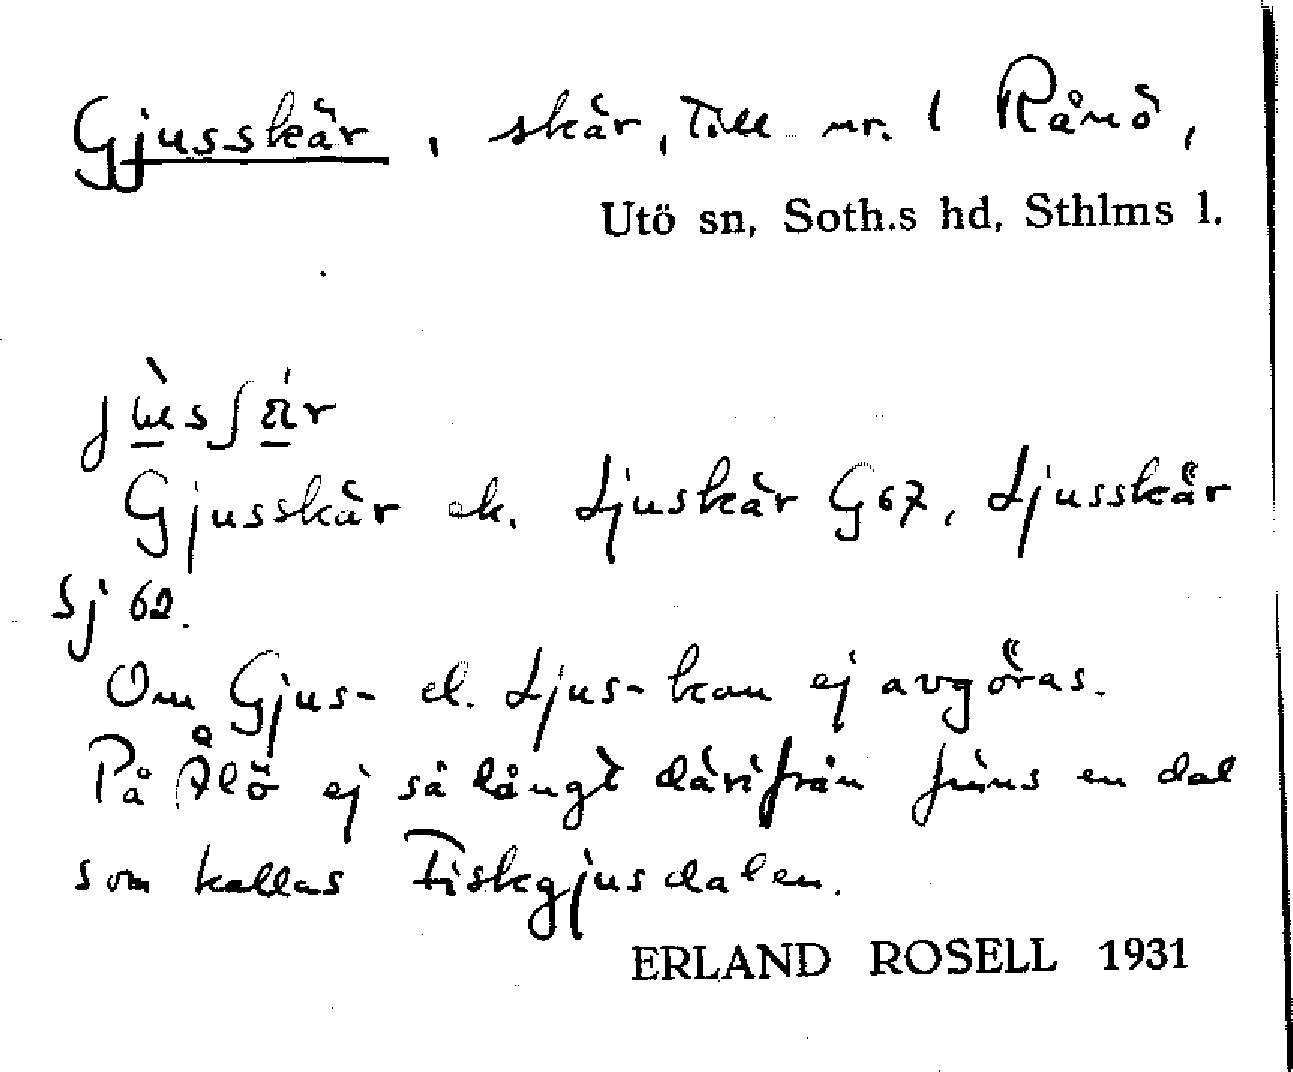 Gjusskär, skär, till nr. 1 Rånö,
Utö sn, Soth.s hd, Sthlms l.
Gjusskär ek. Ljuskär G67, Ljusskär
Sj 62.
Om Gjus- el. Ljus- kan ej avgöras.
På Ålö ej så långt därifrån finns en dal
som kallas Fiskgjusdalen.
ERLAND ROSELL 1931